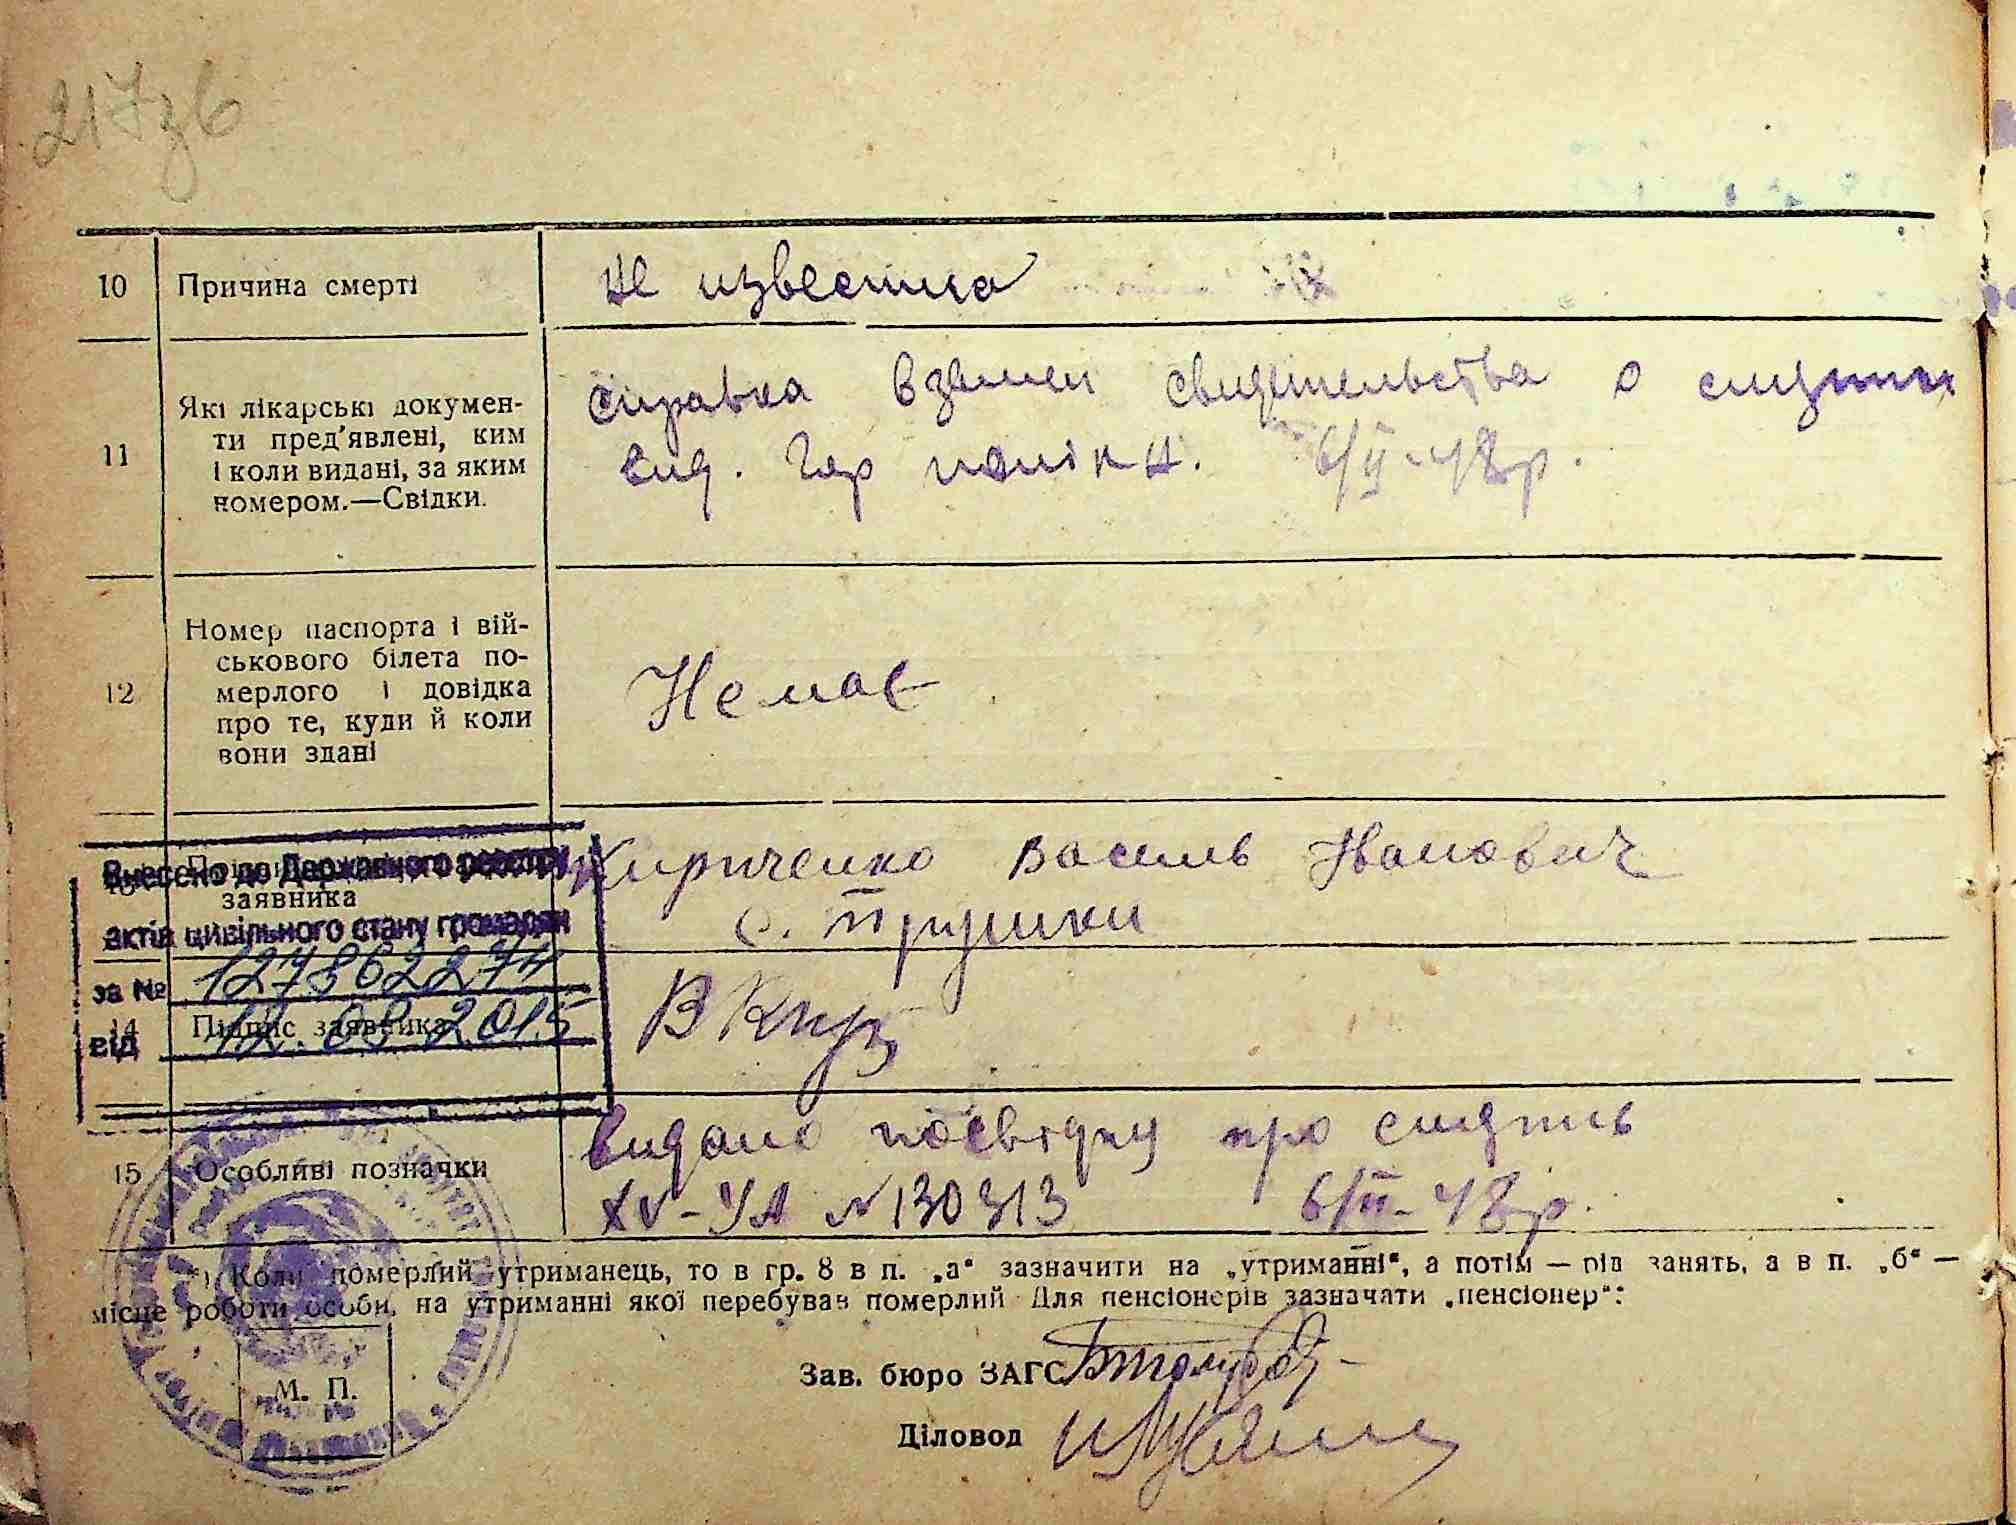 217зв
10 Причина смерті
Не известна
11 Які лікарські докумен-
ти пред'явлені, ким
і коли видані, за яким
номером.—Свідки.
справка взамен свидетельства о смерти
вид. Гор полікл. 6/II-48р.
12 Номер паспорта і вій-
ськового білета по-
мерлого і довідка
про те, куди й коли
вони здані
Немає
заявника
Кириченко Василь Иванович
с. Трушки
Внесено до Державного реєстру
актів цивільного стану громадян
за № 127862274
від 12.08.2015
14 Підпис заявника
В Кир
15 Особливі позначки
видано посвідку про смерть
XV-УА № 130313 6/II-48р.
*) Коли померлий утриманець, то в гр. 8 в п. „а“ зазначити на „утриманні“, а потім — рід занять, а в п. „б“ —
місце роботи особи, на утриманні якої перебував померлий Для пенсіонерів зазначати „пенсіонер“:
М. П.
Зав. бюро ЗАГС
Діловод